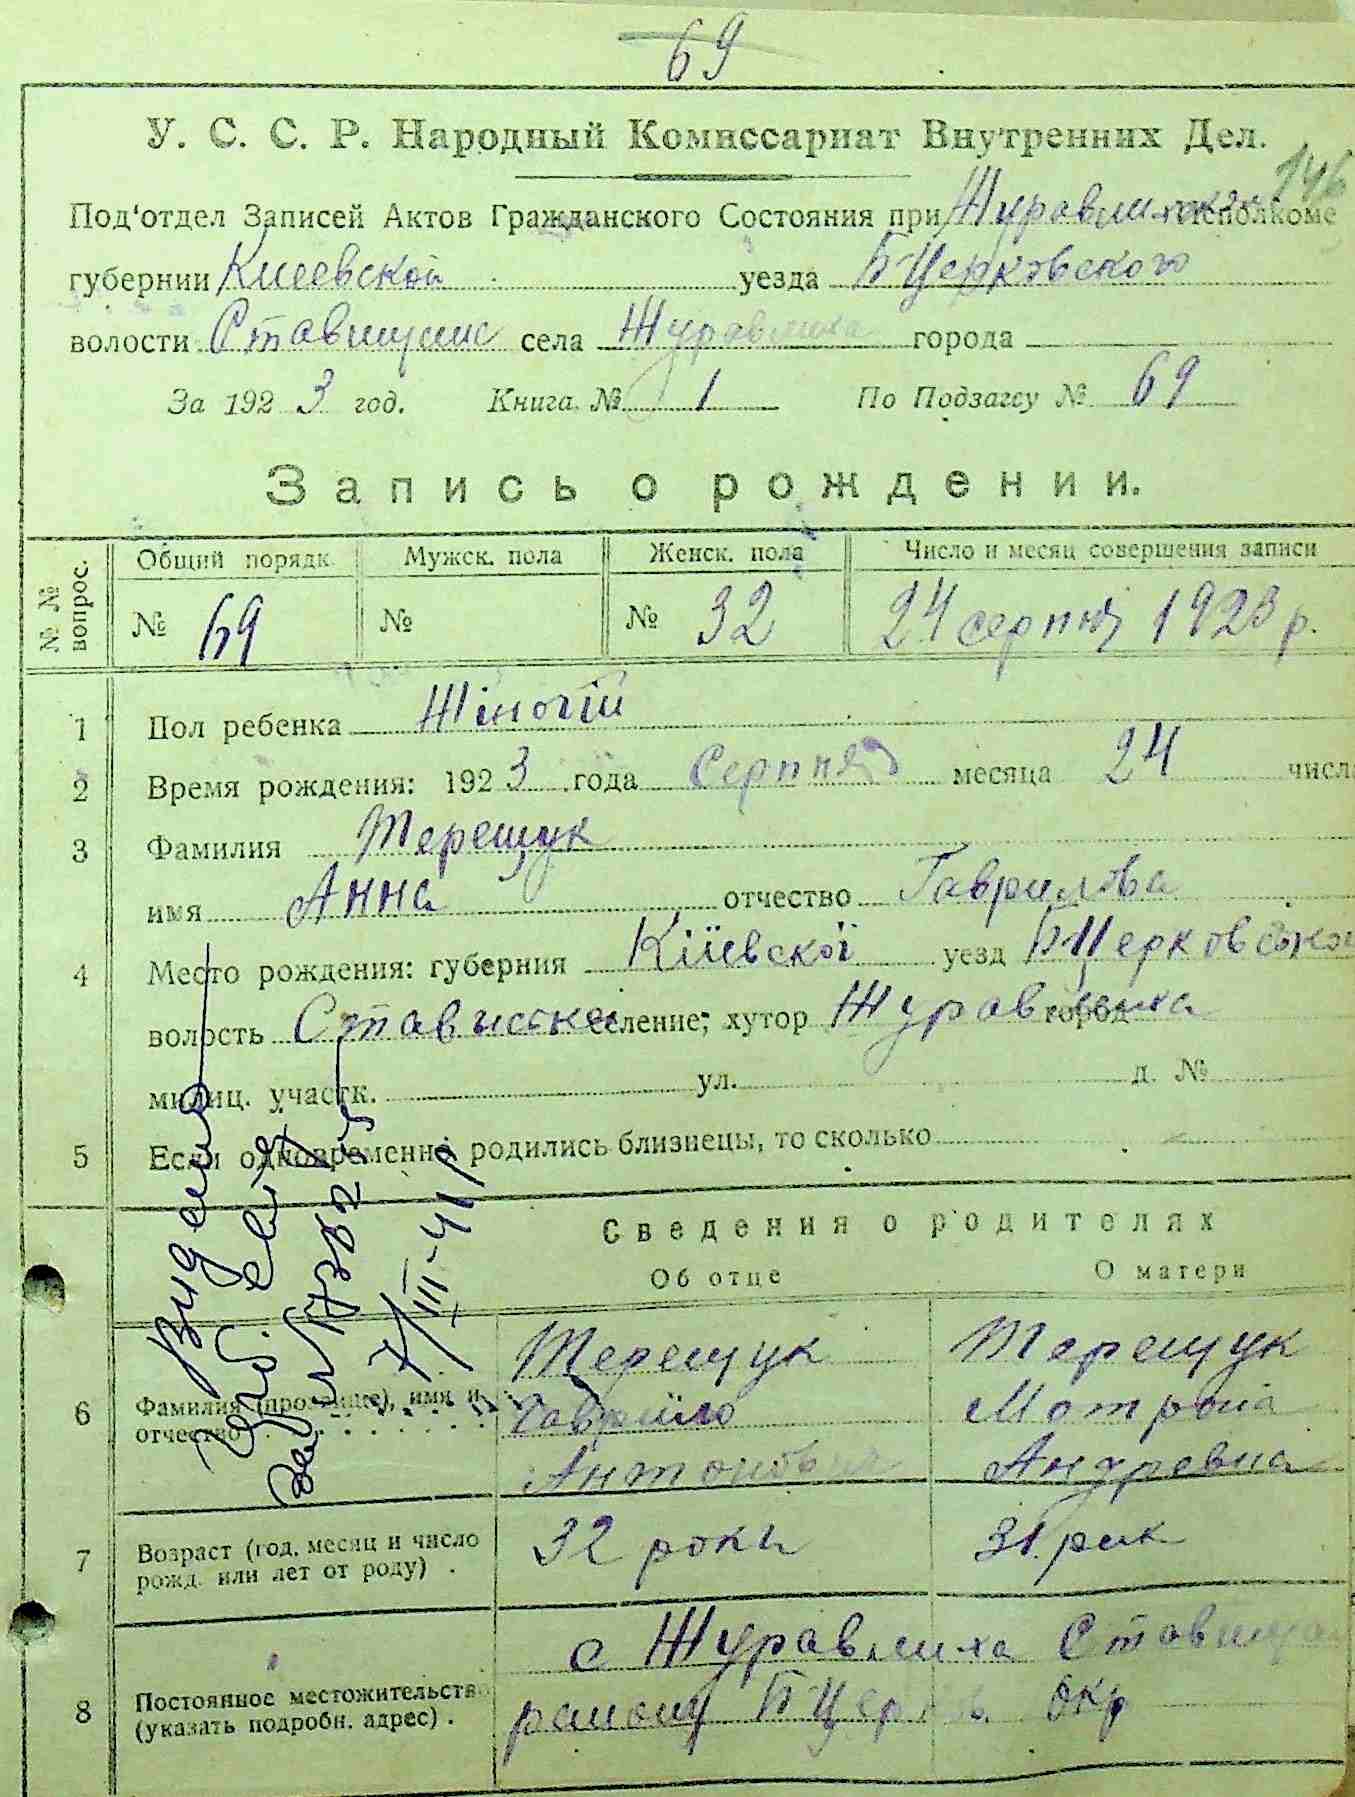 69
146
У. С. С. Р. Народный Комиссариат Внутренних Дел.
Под'отдел Записей Актов Гражданского Состояния при Исполкоме
губернии Киевской уезда БЦерковского
волости села Журавлиха города
За 1923 год. Книга № 1 По Подзагсу № 69
Запись о рождении.
№ № вопрос. Общий порядк. Мужск. пола Женск. пола Число и месяц совершения записи
№ 69 № № 32 24 серпня 1923 р.
1 Пол ребенка Жіночій
2 Время рождения: 1923 года Серпня месяца 24 числа
3 Фамилия Терещук
имя Анна отчество Гаврилова
4 Место рождения: губерния Кіївскої уезд
волость селение, хутор Журавлиха город
милиц. участк. ул. д. №
5 Если одновременно родились близнецы, то сколько
Сведения о родителях
Об отце О матери
6 Фамилия (прозвище), имя и отчество
Терещук Терещук
Гавріло Мотрона
Антонович Андревна
7 Возраст (год, месяц и число рожд. или лет от роду) . 32 роки 31 рік
8 Постоянное местожительство (указать подробн. адрес) .
с Журавлиха
району БЦерков. окр
Видано
7/III-41 р